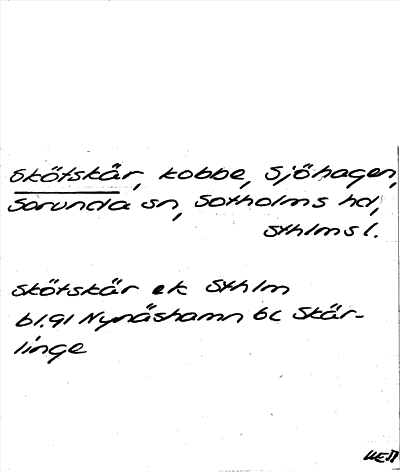 Skötskär, kobbe, Sjöhagen,
Sorunda sn, Sotholms hd,
Sthlms l.
Skötskär ek Sthlm
bl. 91 Nynäshamn bl Skär-
linge